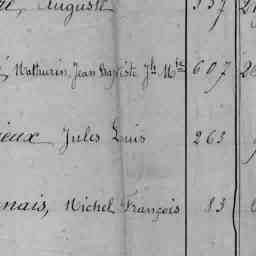 Auguste 337
Mathurin, Jean Baptiste Jh Mie 607
ieux Jules Louis 263
nais, Michel François 83